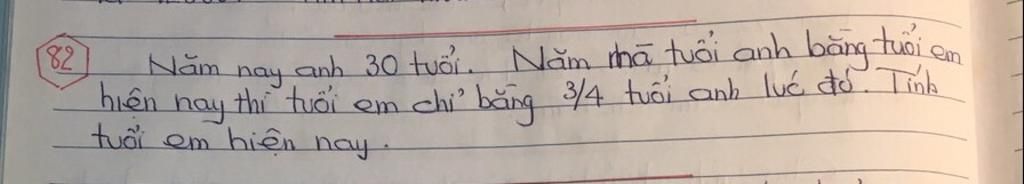 82 Năm nay anh 30 tuổi. Năm mà tuổi anh bằng tuổi em
hiện nay thì tuổi em chỉ bằng 3/4 tuổi anh lúc đó. Tính
tuổi em hiện nay.